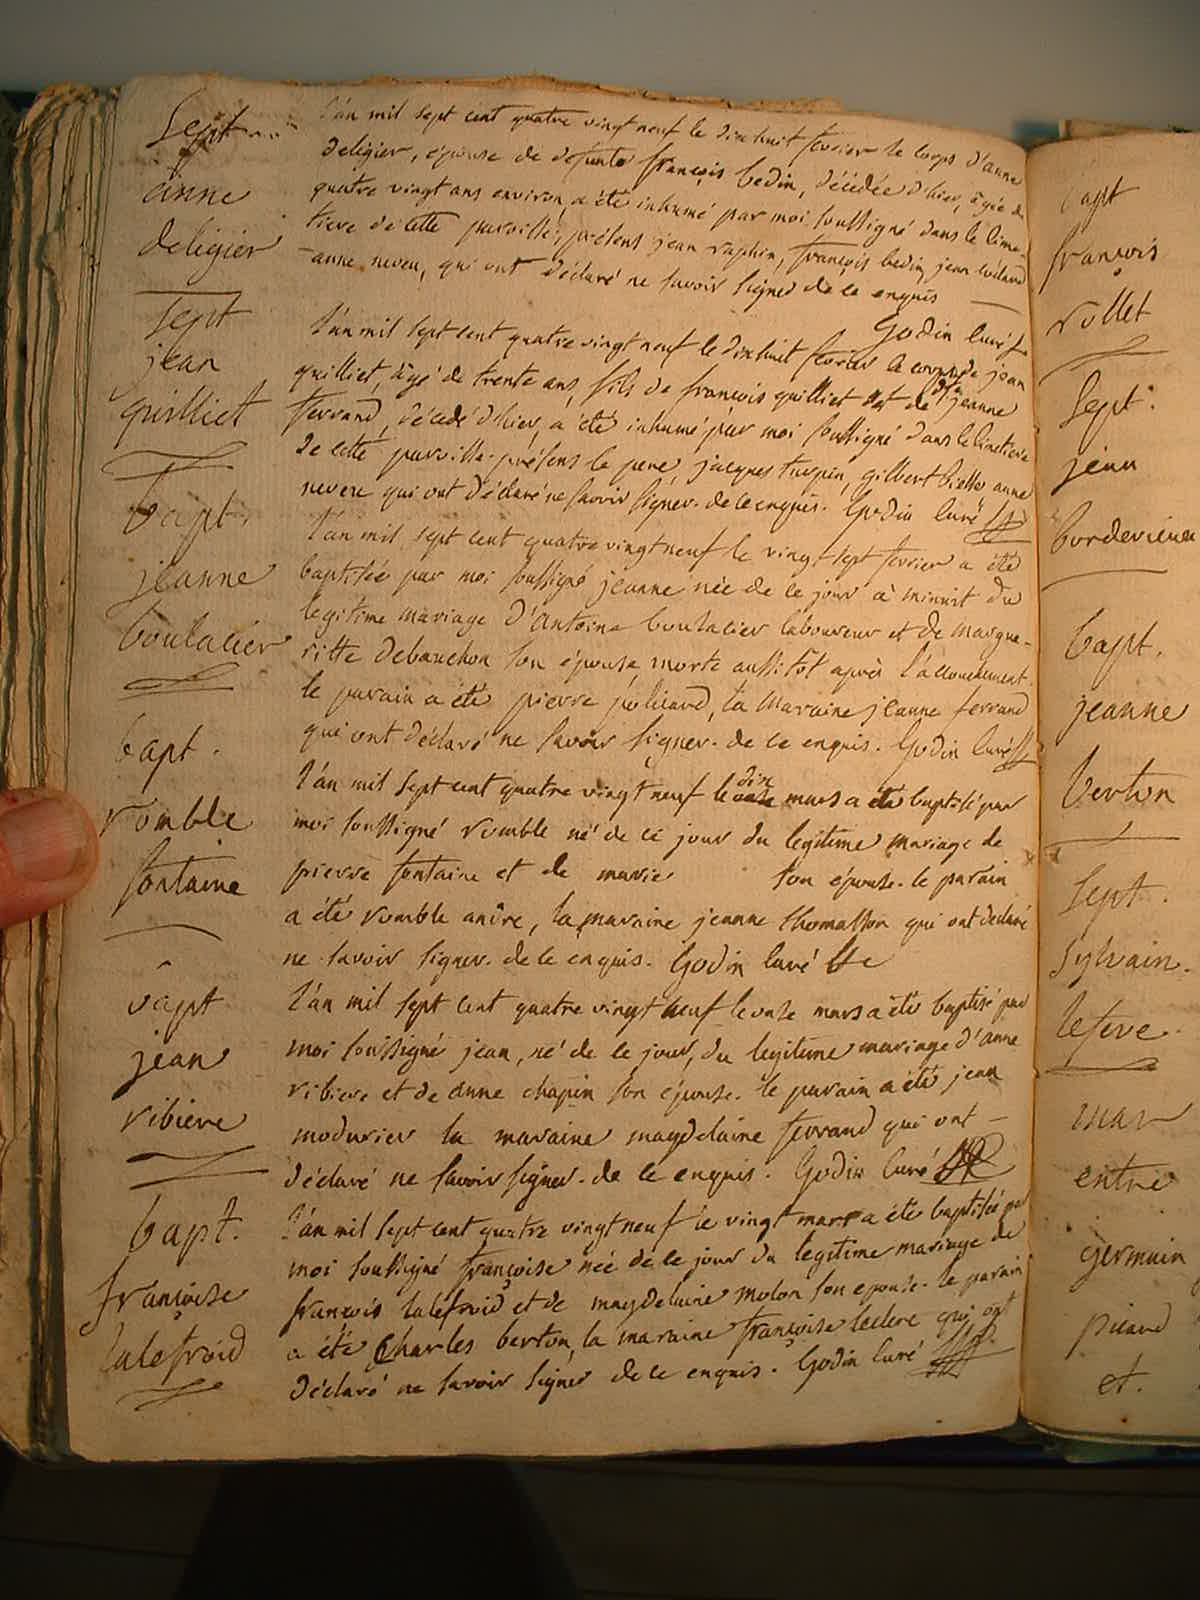 Sept
anne
deligier
L'an mil sept cent quatre vingt neuf le dixhuit fevrier le corps d'anne
deligier, épouse de defunto françois bedin, décédée d'hier, âgée de
quatre vingt ans environ, a été inhumé par moi soussigné dans le cime-
tiere de cette paroisse, présens jean raphin, françois bedin, jean
anne neveu, qui ont déclaré ne savoir signer de ce enquis
Godin curé
Sept
jean
quilliet
L'an mil sept cent quatre vingt neuf le dixhuit fevrier le corps de jean
quilliet, âgé de trente ans, fils de françois quilliet et de jeanne
ferrand, décédé d'hier, a été inhumé par moi soussigné dans le cimetiere
de cette paroisse. présens le pere, jacques turpin, gilbert
qui ont déclaré ne savoir signer. de ce enquis. Godin curé
bapt.
jeanne
boulacier
L'an mil sept cent quatre vingt neuf le vingt sept fevrier a été
baptisée par moi soussigné jeanne née de ce jour à minuit du
legitime mariage d'antoine boulacier laboureur et de margue-
ritte debauchon son épouse morte aussitôt après l'accouchement.
le parain a été pierre, la maraine jeanne ferrand
qui ont déclaré ne savoir signer. de ce enquis. Godin curé
bapt.
romble
fontaine
L'an mil sept cent quatre vingt neuf le dix mars a été baptisé par
moi soussigné romble né de ce jour du legitime mariage de
pierre fontaine et de marie son épouse. le parain
a été romble anire, la maraine jeanne thomasson qui ont déclaré
ne savoir signer. de ce enquis. Godin curé
bapt
jean
ribiere
L'an mil sept cent quatre vingt neuf le onze mars a été baptisé par
moi soussigné jean, né de ce jour, du legitime mariage d'anne
ribiere et de anne chapin son épouse. le parain a été jean
modurier la maraine magdelaine ferrand qui ont
déclaré ne savoir signer. de ce enquis. Godin curé
bapt.
françoise
lalefroid
L'an mil sept cent quatre vingt neuf le vingt mars a été baptisée par
moi soussigné françoise née de ce jour du legitime mariage de
françois lalefroid et de magdelaine molon son epouse. le parain
a été Charles berton, la maraine françoise leclerc qui ont
déclaré ne savoir signer de ce enquis. Godin curé
bapt
françois
rollet
Sept.
jean
bordevieux
bapt.
jeanne
berton
Sept.
sylvain.
lefeve.
mar
entre
germain
picard
et.